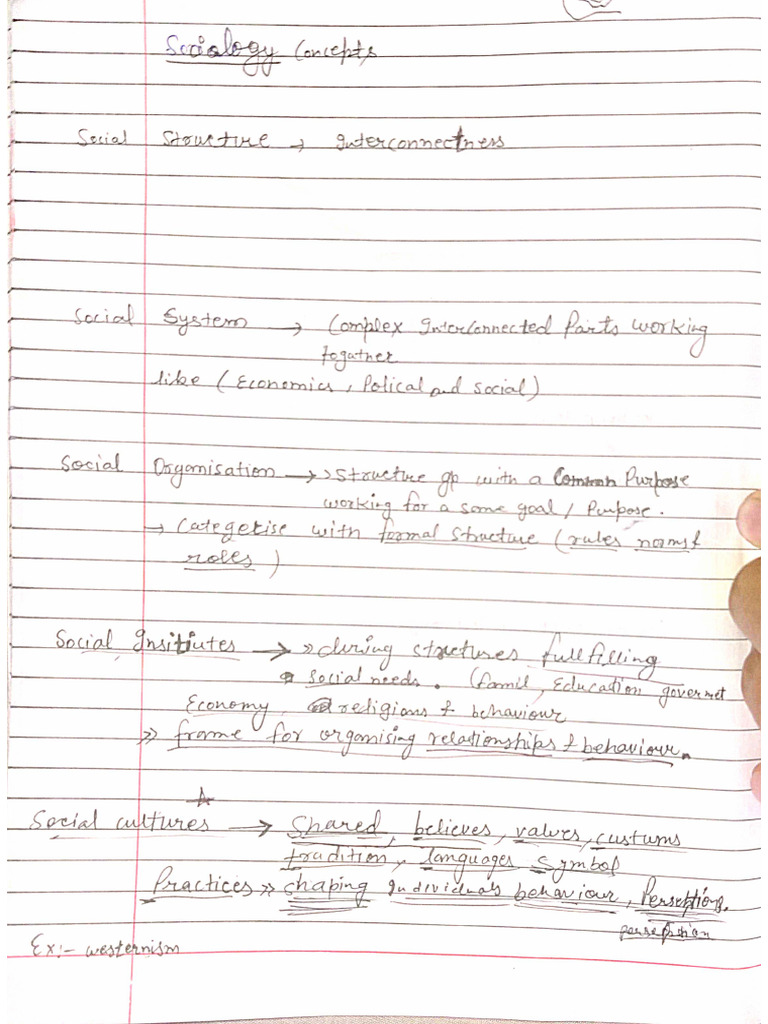 Sociology Concepts
Social Structure → Interconnectness
Social System → Complex Interconnected Parts working
togather
like (Economics, Polical and social)
Social Organisation →» Structure gp with a Common Purpose
working for a some goal / Purpose.
→ Categetise with formal structure (rules norms &
roles)
Social Insititutes → » during structures fullfilling
social needs. (famil, Education govermet
Economy, religions & behaviour
» frame for organising relationships & behaviour.
Social cultures → Shared, believes, values, custums
tradition, languages Symbol
Practices » shaping individuals behaviour, Perseptions.
persephion
Ex:- westernism